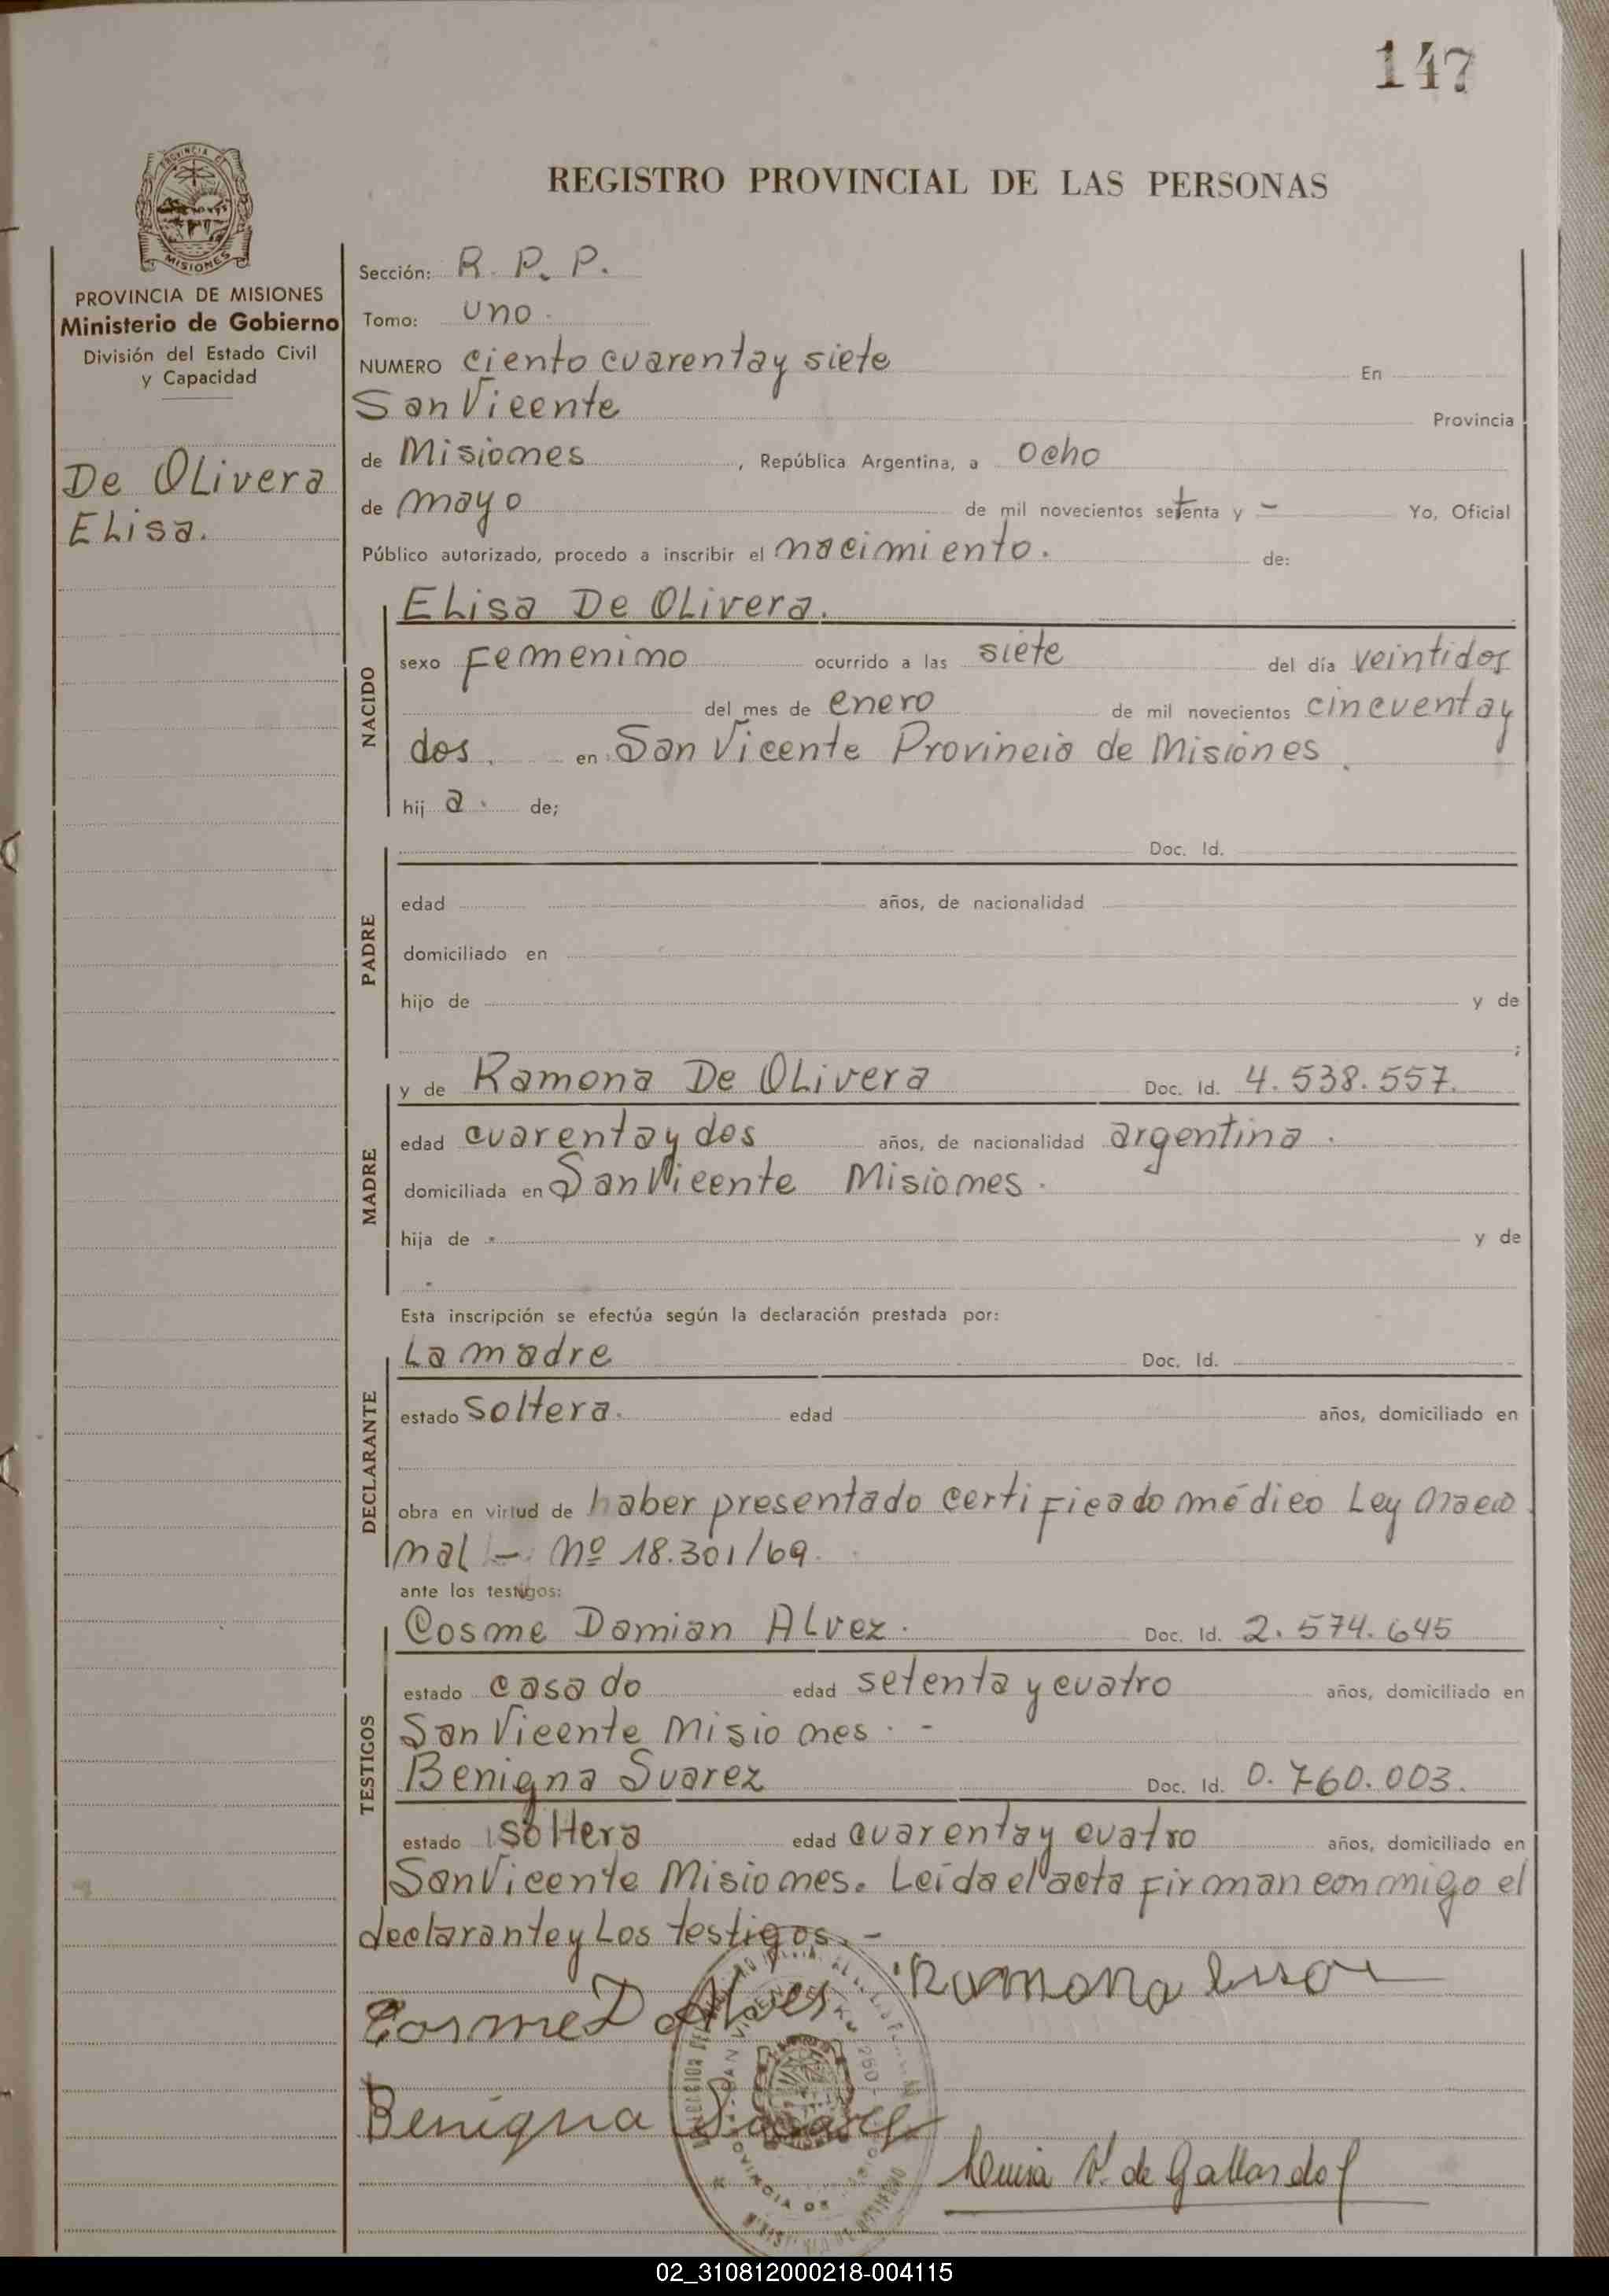 147
REGISTRO PROVINCIAL DE LAS PERSONAS
PROVINCIA DE MISIONES
Ministerio de Gobierno
División del Estado Civil
y Capacidad
De Olivera
Elisa.
Sección: R. P. P.
Tomo: uno.
NUMERO ciento cuarenta y siete En
San Vicente Provincia
de Misiones, República Argentina, a ocho
de mayo de mil novecientos setenta y - Yo, Oficial
Público autorizado, procedo a inscribir el nacimiento. de:
NACIDO
Elisa De Olivera.
sexo Femenino ocurrido a las siete del día veintidos
del mes de enero de mil novecientos cincuenta y
dos. en San Vicente Provincia de Misiones.
hij a. de;
PADRE
Doc. Id.
edad años, de nacionalidad
domiciliado en
hijo de y de
;
MADRE
y de Ramona De Olivera Doc. Id. 4.538.557.
edad cuarenta y dos años, de nacionalidad argentina.
domiciliada en San Vicente Misiones.
hija de y de
Esta inscripción se efectúa según la declaración prestada por:
DECLARANTE
La madre Doc. Id.
estado soltera. edad años, domiciliado en
obra en virtud de haber presentado certificado médico Ley Nacio
nal - Nº 18.301/69.
ante los testigos:
TESTIGOS
Cosme Damian Alvez. Doc. Id. 2.574.645
estado casado edad setenta y cuatro años, domiciliado en
San Vicente Misiones. -
Benigna Suarez Doc. Id. 0.760.003.
estado soltera edad cuarenta y cuatro años, domiciliado en
San Vicente Misiones. Leída el acta firman conmigo el
declarante y los testigos. -
Ramona
Cosme D Alves
Benigna Suarez
V. de Gallardo
02_310812000218-004115